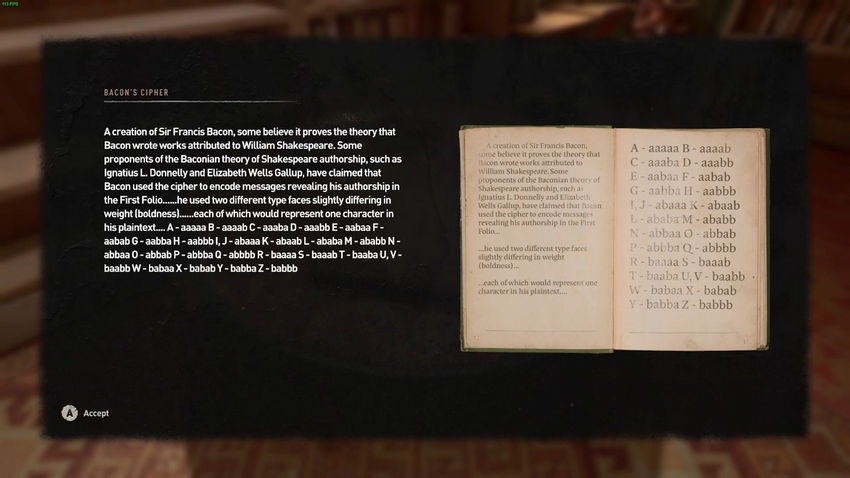 113 FPS
BACON'S CIPHER
A creation of Sir Francis Bacon, some believe it proves the theory that
Bacon wrote works attributed to William Shakespeare. Some
proponents of the Baconian theory of Shakespeare authorship, such as
Ignatius L. Donnelly and Elizabeth Wells Gallup, have claimed that
Bacon used the cipher to encode messages revealing his authorship in
the First Folio......he used two different type faces slightly differing in
weight (boldness)......each of which would represent one character in
his plaintext.... A - aaaaa B - aaaab C - aaaba D - aaabb E - aabaa F -
aabab G - aabba H - aabbb I, J - abaaa K - abaab L - ababa M - ababb N -
abbaa O - abbab P - abbba Q - abbbb R - baaaa S - baaab T - baaba U, V -
baabb W - babaa X - babab Y - babba Z - babbb
A creation of Sir Francis Bacon,
some believe it proves the theory that
Bacon wrote works attributed to
William Shakespeare. Some
proponents of the Baconian theory of
Shakespeare authorship, such as
Ignatius L. Donnelly and Elizabeth
Wells Gallup, have claimed that Bacon
used the cipher to encode messages
revealing his authorship in the First
Folio...
...he used two different type faces
slightly differing in weight
(boldness)...
...each of which would represent one
character in his plaintext....
A - aaaaa B - aaaab
C - aaaba D - aaabb
E - aabaa F - aabab
G - aabba H - aabbb
I, J - abaaa K - abaab
L - ababa M - ababb
N - abbaa O - abbab
P - abbba Q - abbbb
R - baaaa S - baaab
T - baaba U, V - baabb
W - babaa X - babab
Y - babba Z - babbb
A Accept